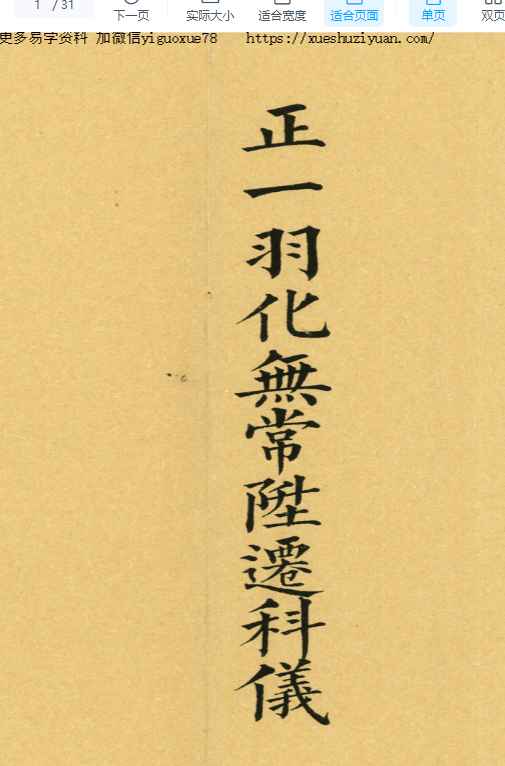 1 / 31
下一页
实际大小
适合宽度
适合页面
单页
双页
更多易学资料 加微信yiguoxue78 https://xueshuziyuan.com/
正一羽化無常陞遷科儀